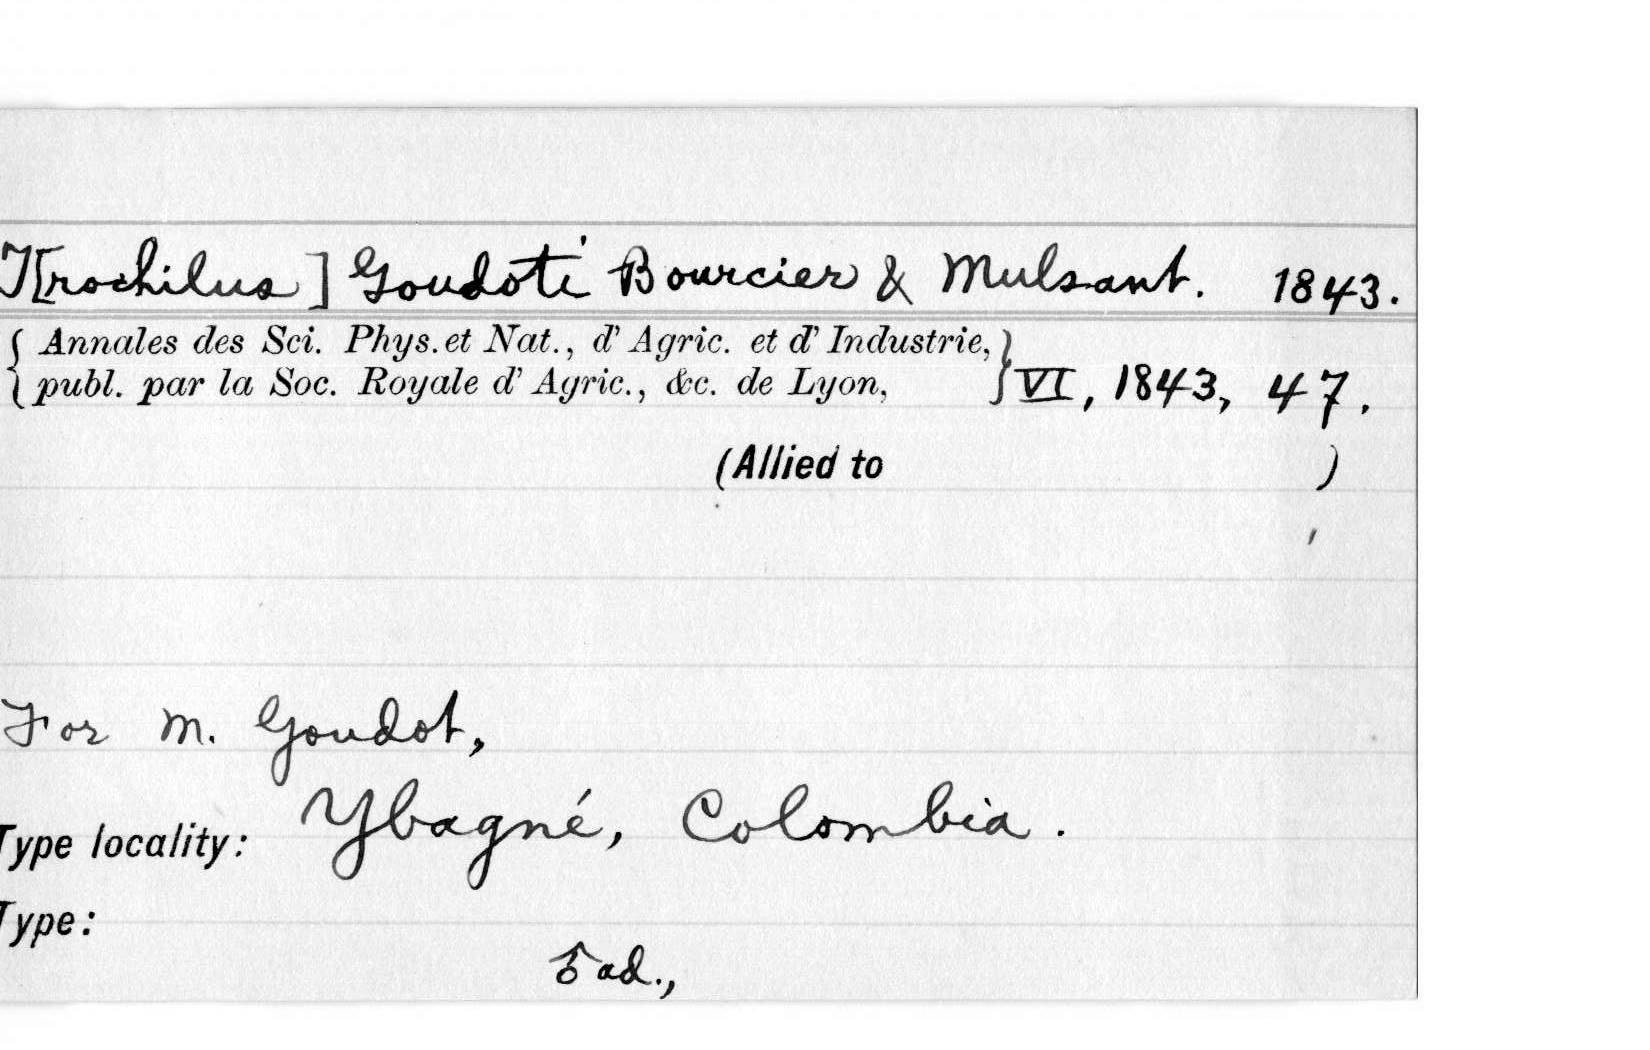 T[rochilus] Goudoti Bourcier & Mulsant. 1843.
{ Annales des Sci. Phys. et Nat., d' Agric. et d' Industrie, }
{ publ. par la Soc. Royale d' Agric., &c. de Lyon, } VI, 1843, 47.
(Allied to )
For M. Goudot,
Type locality: Ybagné, Colombia.
Type:
♂ ad.,